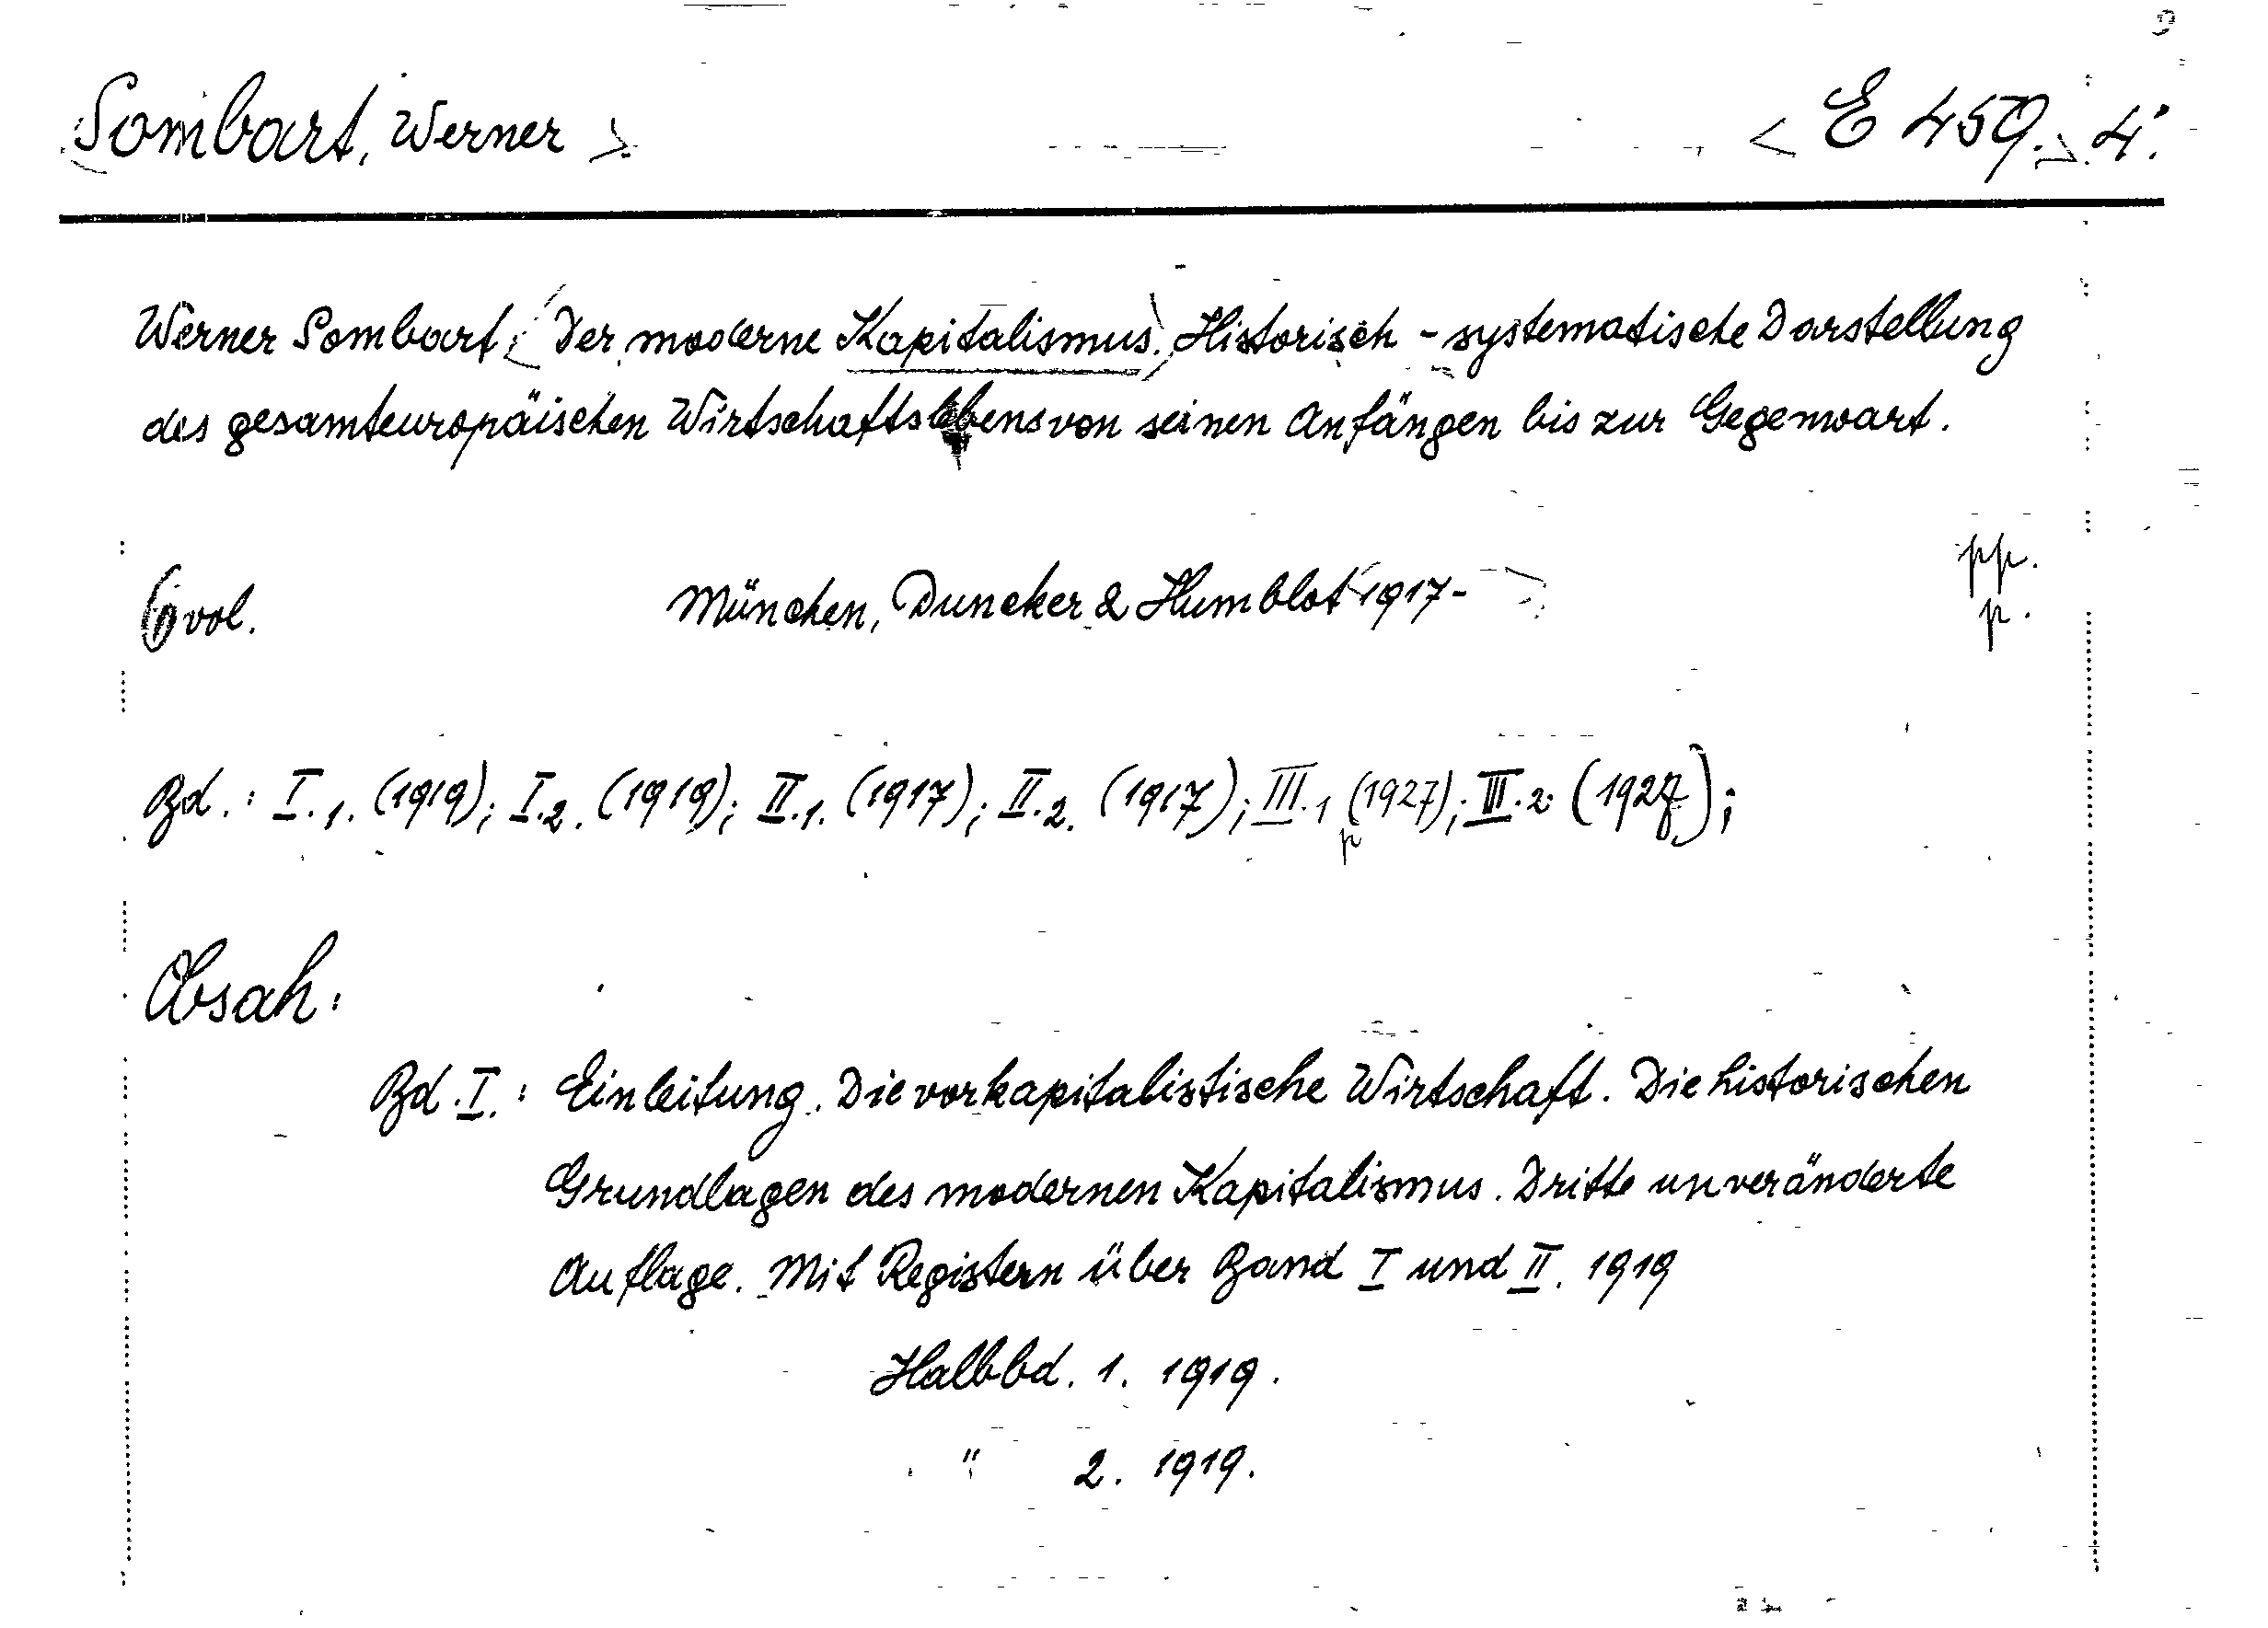 Sombart, Werner > < E 459. > 4°.
Werner Sombart: Der moderne Kapitalismus. Historisch-systematische Darstellung
des gesamteuropäischen Wirtschaftslebens von seinen Anfängen bis zur Gegenwart.
6 vol. München, Duncker & Humblot 1917- pp.
p.
Bd.: I.1. (1919); I.2. (1919); II.1. (1917); II.2. (1917); III.1 (1927); III.2. (1927);
p
Obsah:
Bd. I.: Einleitung. Die vorkapitalistische Wirtschaft. Die historischen
Grundlagen des modernen Kapitalismus. Dritte unveränderte
Auflage. Mit Registern über Band I und II. 1919
Halbbd. 1. 1919.
" 2. 1919.